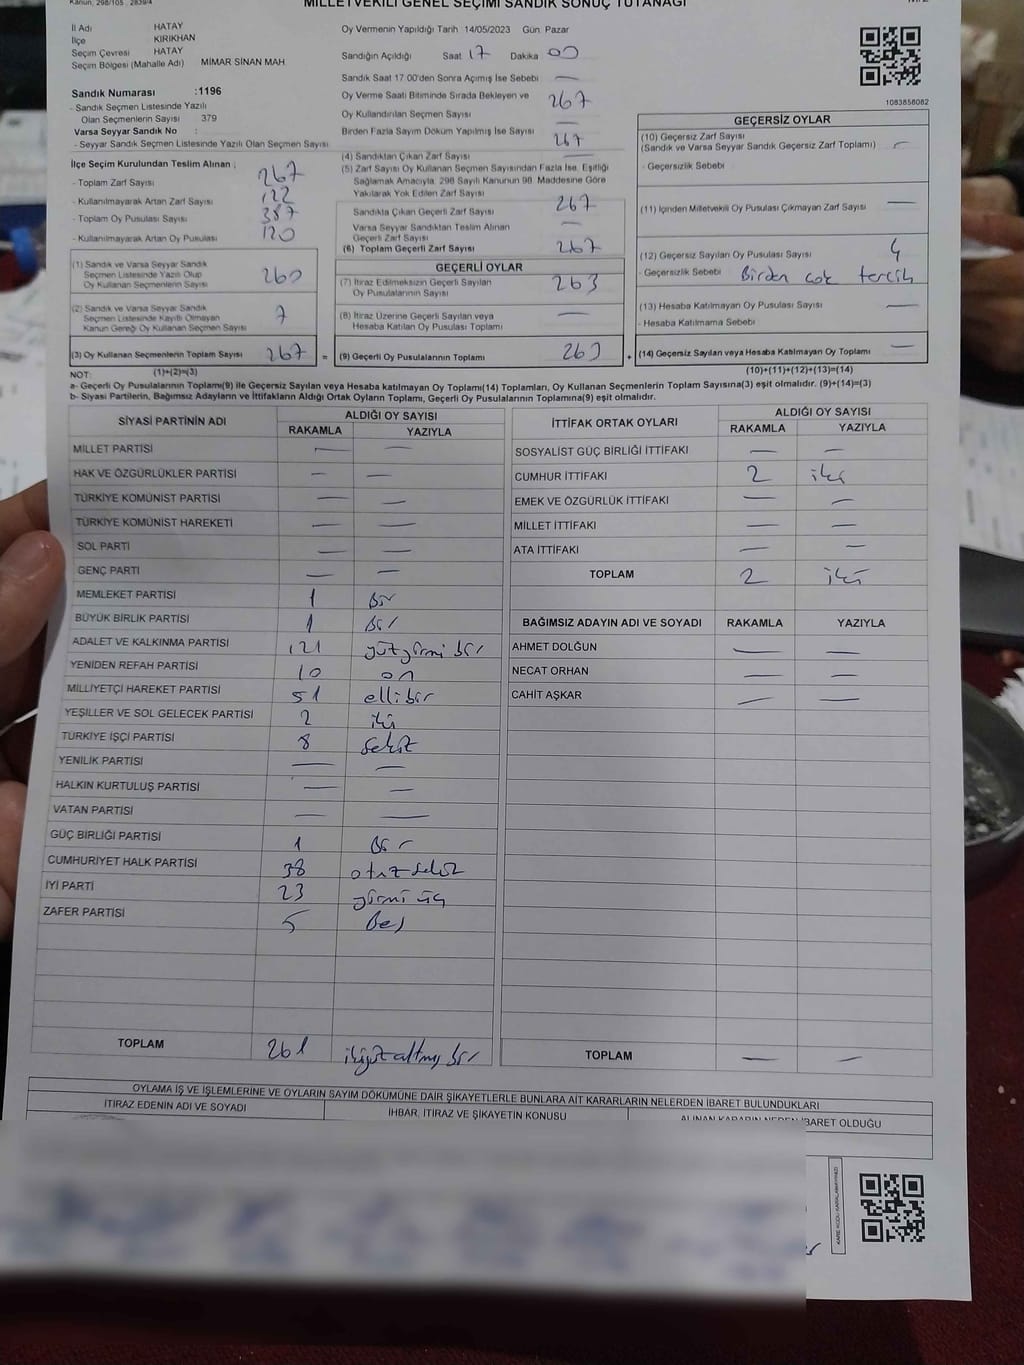 Kanun: 298/105, 2839/4
MİLLETVEKİLİ GENEL SEÇİMİ SANDIK SONUÇ TUTANAĞI
İl Adı HATAY
İlçe KIRIKHAN
Seçim Çevresi HATAY
Seçim Bölgesi (Mahalle Adı) MİMAR SİNAN MAH
Sandık Numarası :1196
- Sandık Seçmen Listesinde Yazılı
Olan Seçmenlerin Sayısı 379
Varsa Seyyar Sandık No :
- Seyyar Sandık Seçmen Listesinde Yazılı Olan Seçmen Sayısı
İlçe Seçim Kurulundan Teslim Alınan ;
- Toplam Zarf Sayısı 267
- Kullanılmayarak Artan Zarf Sayısı 122
- Toplam Oy Pusulası Sayısı 387
- Kullanılmayarak Artan Oy Pusulası 120
(1) Sandık ve Varsa Seyyar Sandık
Seçmen Listesinde Yazılı Olup
Oy Kullanan Seçmenlerin Sayısı 260
(2) Sandık ve Varsa Seyyar Sandık
Seçmen Listesinde Kayıtlı Olmayan
Kanun Gereği Oy Kullanan Seçmen Sayısı 7
(3) Oy Kullanan Seçmenlerin Toplam Sayısı 267 =
Oy Vermenin Yapıldığı Tarih 14/05/2023 Gün Pazar
Sandığın Açıldığı Saat 17 Dakika 00
Sandık Saat 17:00'den Sonra Açılmış İse Sebebi —
Oy Verme Saati Bitiminde Sırada Bekleyen ve
Oy Kullandırılan Seçmen Sayısı 267
Birden Fazla Sayım Döküm Yapılmış İse Sayısı —
(4) Sandıktan Çıkan Zarf Sayısı 267
(5) Zarf Sayısı Oy Kullanan Seçmen Sayısından Fazla İse, Eşitliği —
Sağlamak Amacıyla, 298 Sayılı Kanunun 98. Maddesine Göre
Yakılarak Yok Edilen Zarf Sayısı
Sandıkta Çıkan Geçerli Zarf Sayısı 267
Varsa Seyyar Sandıktan Teslim Alınan
Geçerli Zarf Sayısı —
(6) Toplam Geçerli Zarf Sayısı 267
GEÇERLİ OYLAR
(7) İtiraz Edilmeksizin Geçerli Sayılan
Oy Pusulalarının Sayısı 263
(8) İtiraz Üzerine Geçerli Sayılan veya
Hesaba Katılan Oy Pusulası Toplamı —
(9) Geçerli Oy Pusulalarının Toplamı 263 +
1083858082
GEÇERSİZ OYLAR
(10) Geçersiz Zarf Sayısı
(Sandık ve Varsa Seyyar Sandık Geçersiz Zarf Toplamı) —
- Geçersizlik Sebebi
(11) İçinden Milletvekili Oy Pusulası Çıkmayan Zarf Sayısı —
(12) Geçersiz Sayılan Oy Pusulası Sayısı 4
- Geçersizlik Sebebi Birden çok tercih
(13) Hesaba Katılmayan Oy Pusulası Sayısı —
- Hesaba Katılmama Sebebi
(14) Geçersiz Sayılan veya Hesaba Katılmayan Oy Toplamı —
NOT: (1)+(2)=(3) (10)+(11)+(12)+(13)=(14)
a- Geçerli Oy Pusulalarının Toplamı(9) ile Geçersiz Sayılan veya Hesaba katılmayan Oy Toplamı(14) Toplamları, Oy Kullanan Seçmenlerin Toplam Sayısına(3) eşit olmalıdır. (9)+(14)=(3)
b- Siyasi Partilerin, Bağımsız Adayların ve İttifakların Aldığı Ortak Oyların Toplamı, Geçerli Oy Pusulalarının Toplamına(9) eşit olmalıdır.
SİYASİ PARTİNİN ADI ALDIĞI OY SAYISI
RAKAMLA YAZIYLA
MİLLET PARTİSİ — —
HAK VE ÖZGÜRLÜKLER PARTİSİ — —
TÜRKİYE KOMÜNİST PARTİSİ — —
TÜRKİYE KOMÜNİST HAREKETİ — —
SOL PARTİ — —
GENÇ PARTİ — —
MEMLEKET PARTİSİ 1 Bir
BÜYÜK BİRLİK PARTİSİ 1 Bir
ADALET VE KALKINMA PARTİSİ 121 yüzyirmi bir
YENİDEN REFAH PARTİSİ 10 on
MİLLİYETÇİ HAREKET PARTİSİ 51 ellibir
YEŞİLLER VE SOL GELECEK PARTİSİ 2 iki
TÜRKİYE İŞÇİ PARTİSİ 8 Sekiz
YENİLİK PARTİSİ — —
HALKIN KURTULUŞ PARTİSİ — —
VATAN PARTİSİ — —
GÜÇ BİRLİĞİ PARTİSİ 1 Bir
CUMHURİYET HALK PARTİSİ 38 otuz sekiz
İYİ PARTİ 23 yirmi üç
ZAFER PARTİSİ 5 Beş
TOPLAM 261 ikiyüz altmış bir
İTTİFAK ORTAK OYLARI ALDIĞI OY SAYISI
RAKAMLA YAZIYLA
SOSYALİST GÜÇ BİRLİĞİ İTTİFAKI — —
CUMHUR İTTİFAKI 2 iki
EMEK VE ÖZGÜRLÜK İTTİFAKI — —
MİLLET İTTİFAKI — —
ATA İTTİFAKI — —
TOPLAM 2 iki
BAĞIMSIZ ADAYIN ADI VE SOYADI RAKAMLA YAZIYLA
AHMET DOLĞUN — —
NECAT ORHAN — —
CAHİT AŞKAR — —
TOPLAM — —
OYLAMA İŞ VE İŞLEMLERİNE VE OYLARIN SAYIM DÖKÜMÜNE DAİR ŞİKAYETLERLE BUNLARA AİT KARARLARIN NELERDEN İBARET BULUNDUKLARI
İTİRAZ EDENİN ADI VE SOYADI İHBAR, İTİRAZ VE ŞİKAYETİN KONUSU ALINAN KARARIN NEDEN İBARET OLDUĞU